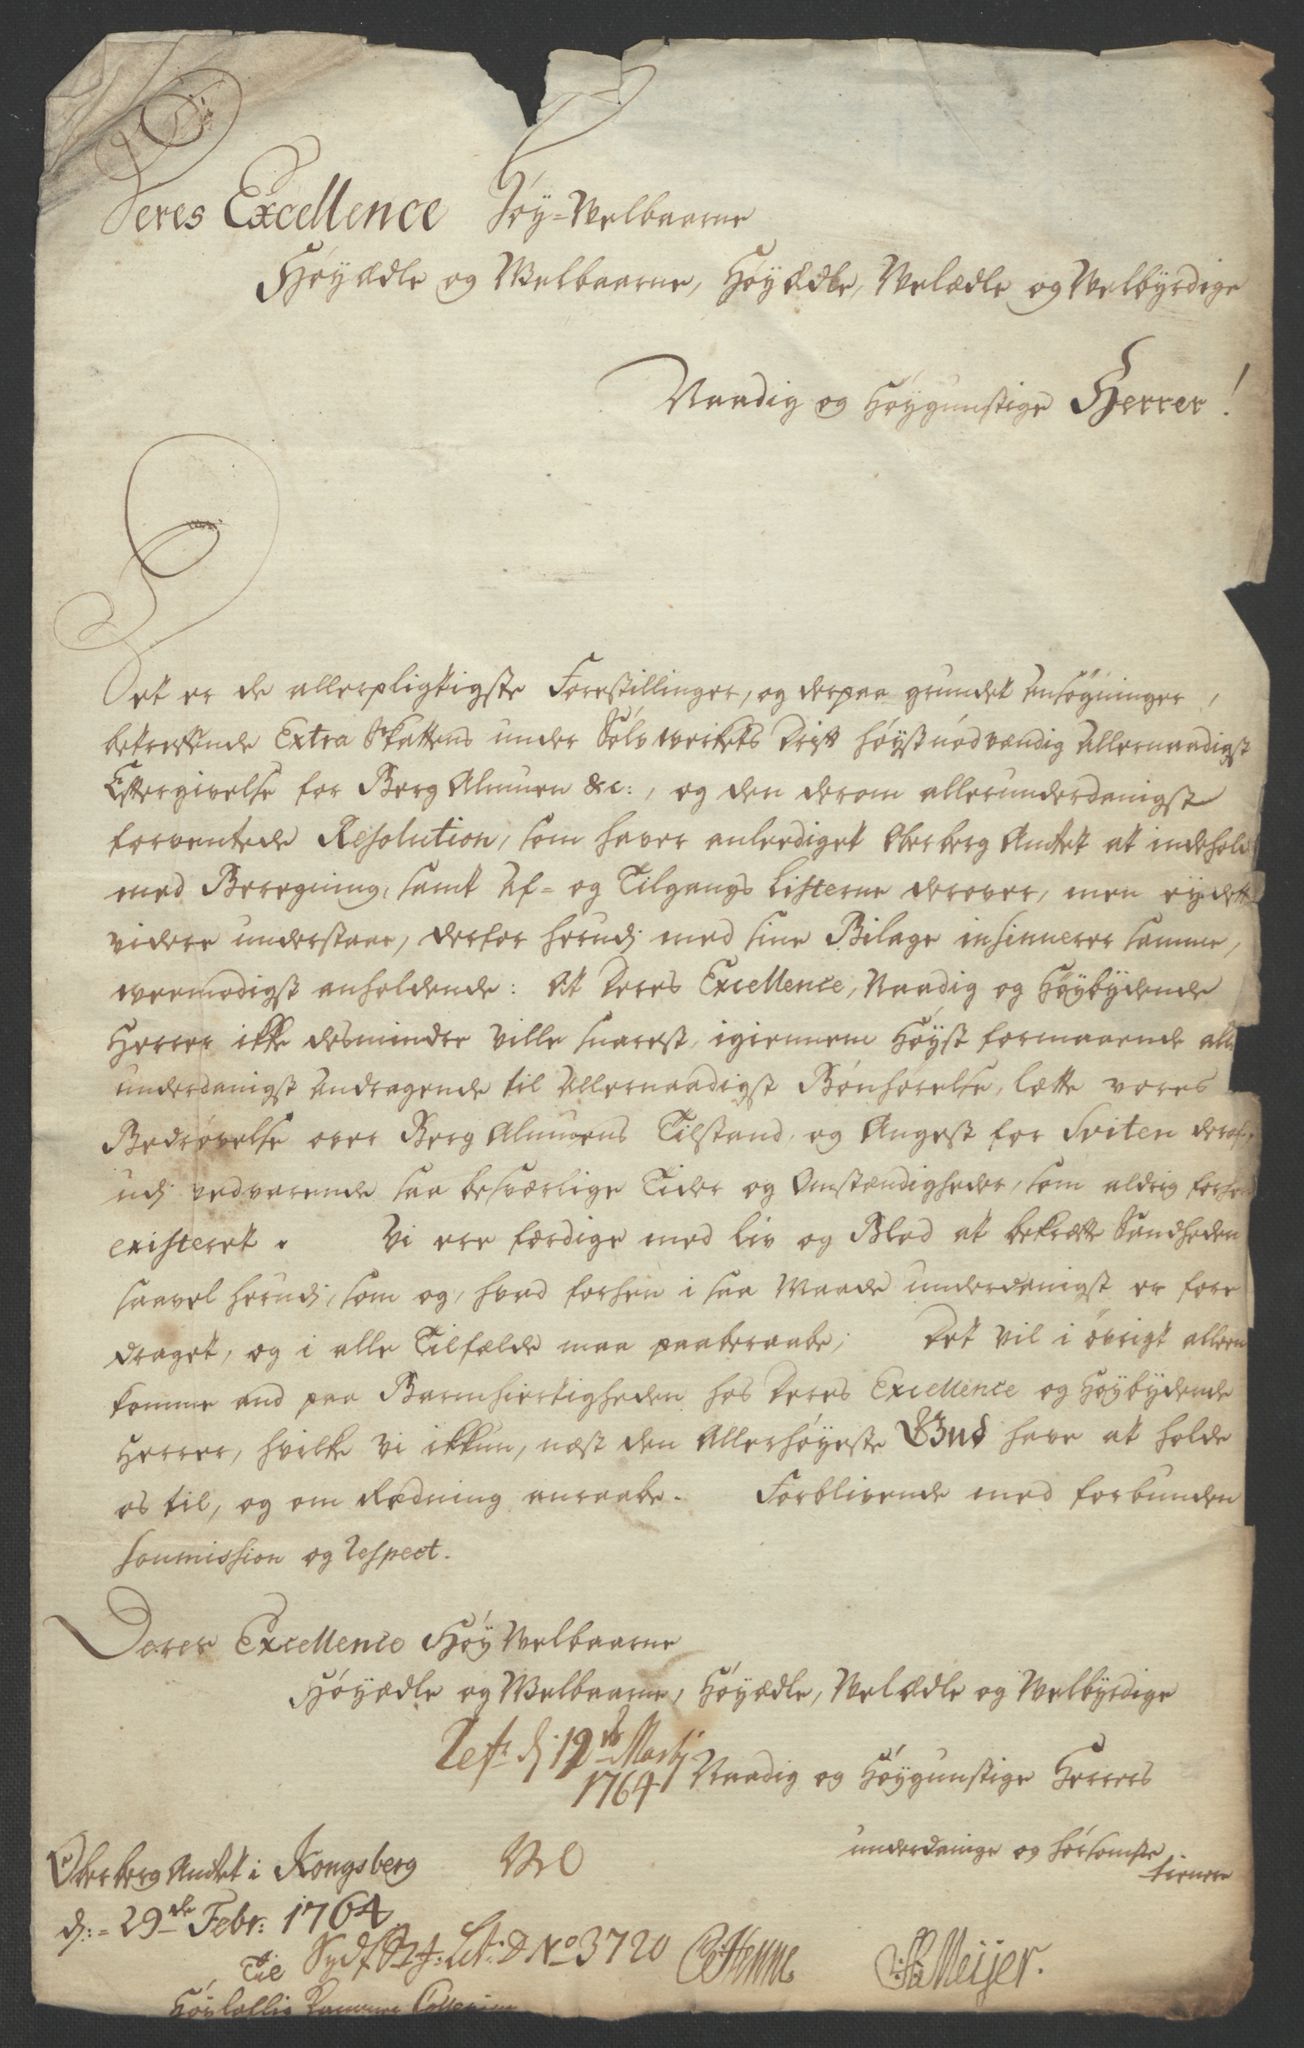 Deres Excellence Høy-Welbaarne
Høyædle og Welbaarne, Høyædle, Velædle og Welbyrdige
Naadig og Høygunstige Herrer!
Det er de allerpligtigste Forestillinger, og derpaa grundet Ansøgninger,
betreffende Extra Skattens under Sølvwerkets Drift høystnødvændig Allernaadigst
Eftergivelse for Berg Almuen &c:, og den derom allerunderdanigst
forventede Resolution, som haver anlediget Oberberg Amtet at indehold
med Beregning, samt Af- og Tilgangs Listerne derover, men ey dette
videre understaar, derfor herudj med sine Bilage insinuerer samme,
weemodigst anholdende: At Deres Excellence, Naadig og Høybydende
Herrer ikke desmindre ville snarest, igiennem Høyst formaaende aller
underdanigst Andragende til Allernaadigst Bønhørelse, lætte vores
Bedrøvelse over Berg Almuens Tilstand, og Angest for Sviten deraf,
udj vedvarende saa besværlige Tider og Omstændigheder, som aldrig forhen
existeret. Vi ere færdige med Liv og Blod at bekræfte Sandheden
saavel herudj, som og, hvad forhen i saa Maade underdanigst er fore
draget, og i alle Tilfælde maa paaberaabe; Det vil i øvrigt alleene
komme and paa Barmhiertigheden hos Deres Excellence og Høybydende
Herrer, hvilke Vi ikkun, næst den Allerhøyeste Gud have at holde
os til, og om Redning anraabe. Forblivende med forbunden
soumission og respect.
Deres Excellence Høy Welbaarne
Høyædle og Welbaarne, Høyædle, Velædle og Welbyrdige
Naadig og Høygunstige Herrers
Ref: dj 12te Martj
1764
underdanige og hørsomste
tienere
Oberberg Amtet i Kongsberg
dj:- 29de Febr: 1764
Lit: D No 3720
Meijer.
Til
Høylovlig Cammer Collegium